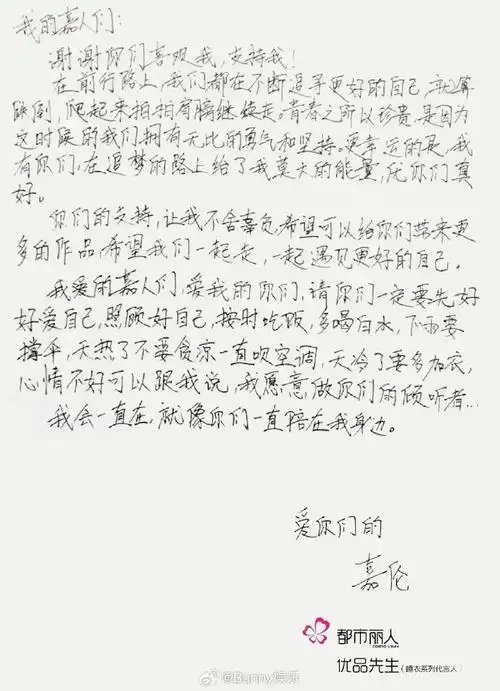 我的嘉人们:
谢谢你们喜欢我,支持我!
在前行路上,我们都在不断追寻更好的自己,就算
跌倒,爬起来拍拍肩膀继续走。青春之所以珍贵,是因为
这时候的我们拥有无比的勇气和坚持。更幸运的是,我
有你们,在追梦的路上给了我莫大的能量,有你们真
好。
你们的支持,让我不舍辜负,希望可以给你们带来更
多的作品,希望我们一起走,一起遇见更好的自己。
我爱的嘉人们,爱我的你们,请你们一定要先好
好爱自己,照顾好自己,按时吃饭,多喝白水,下雨要
撑伞,天热了不要贪凉一直吹空调,天冷了要多加衣,
心情不好可以跟我说,我愿意做你们的倾听者...
我会一直在,就像你们一直陪在我身边。
爱你们的
嘉伦
都市丽人
优品先生(睡衣系列代言人)
@Bunny娱乐